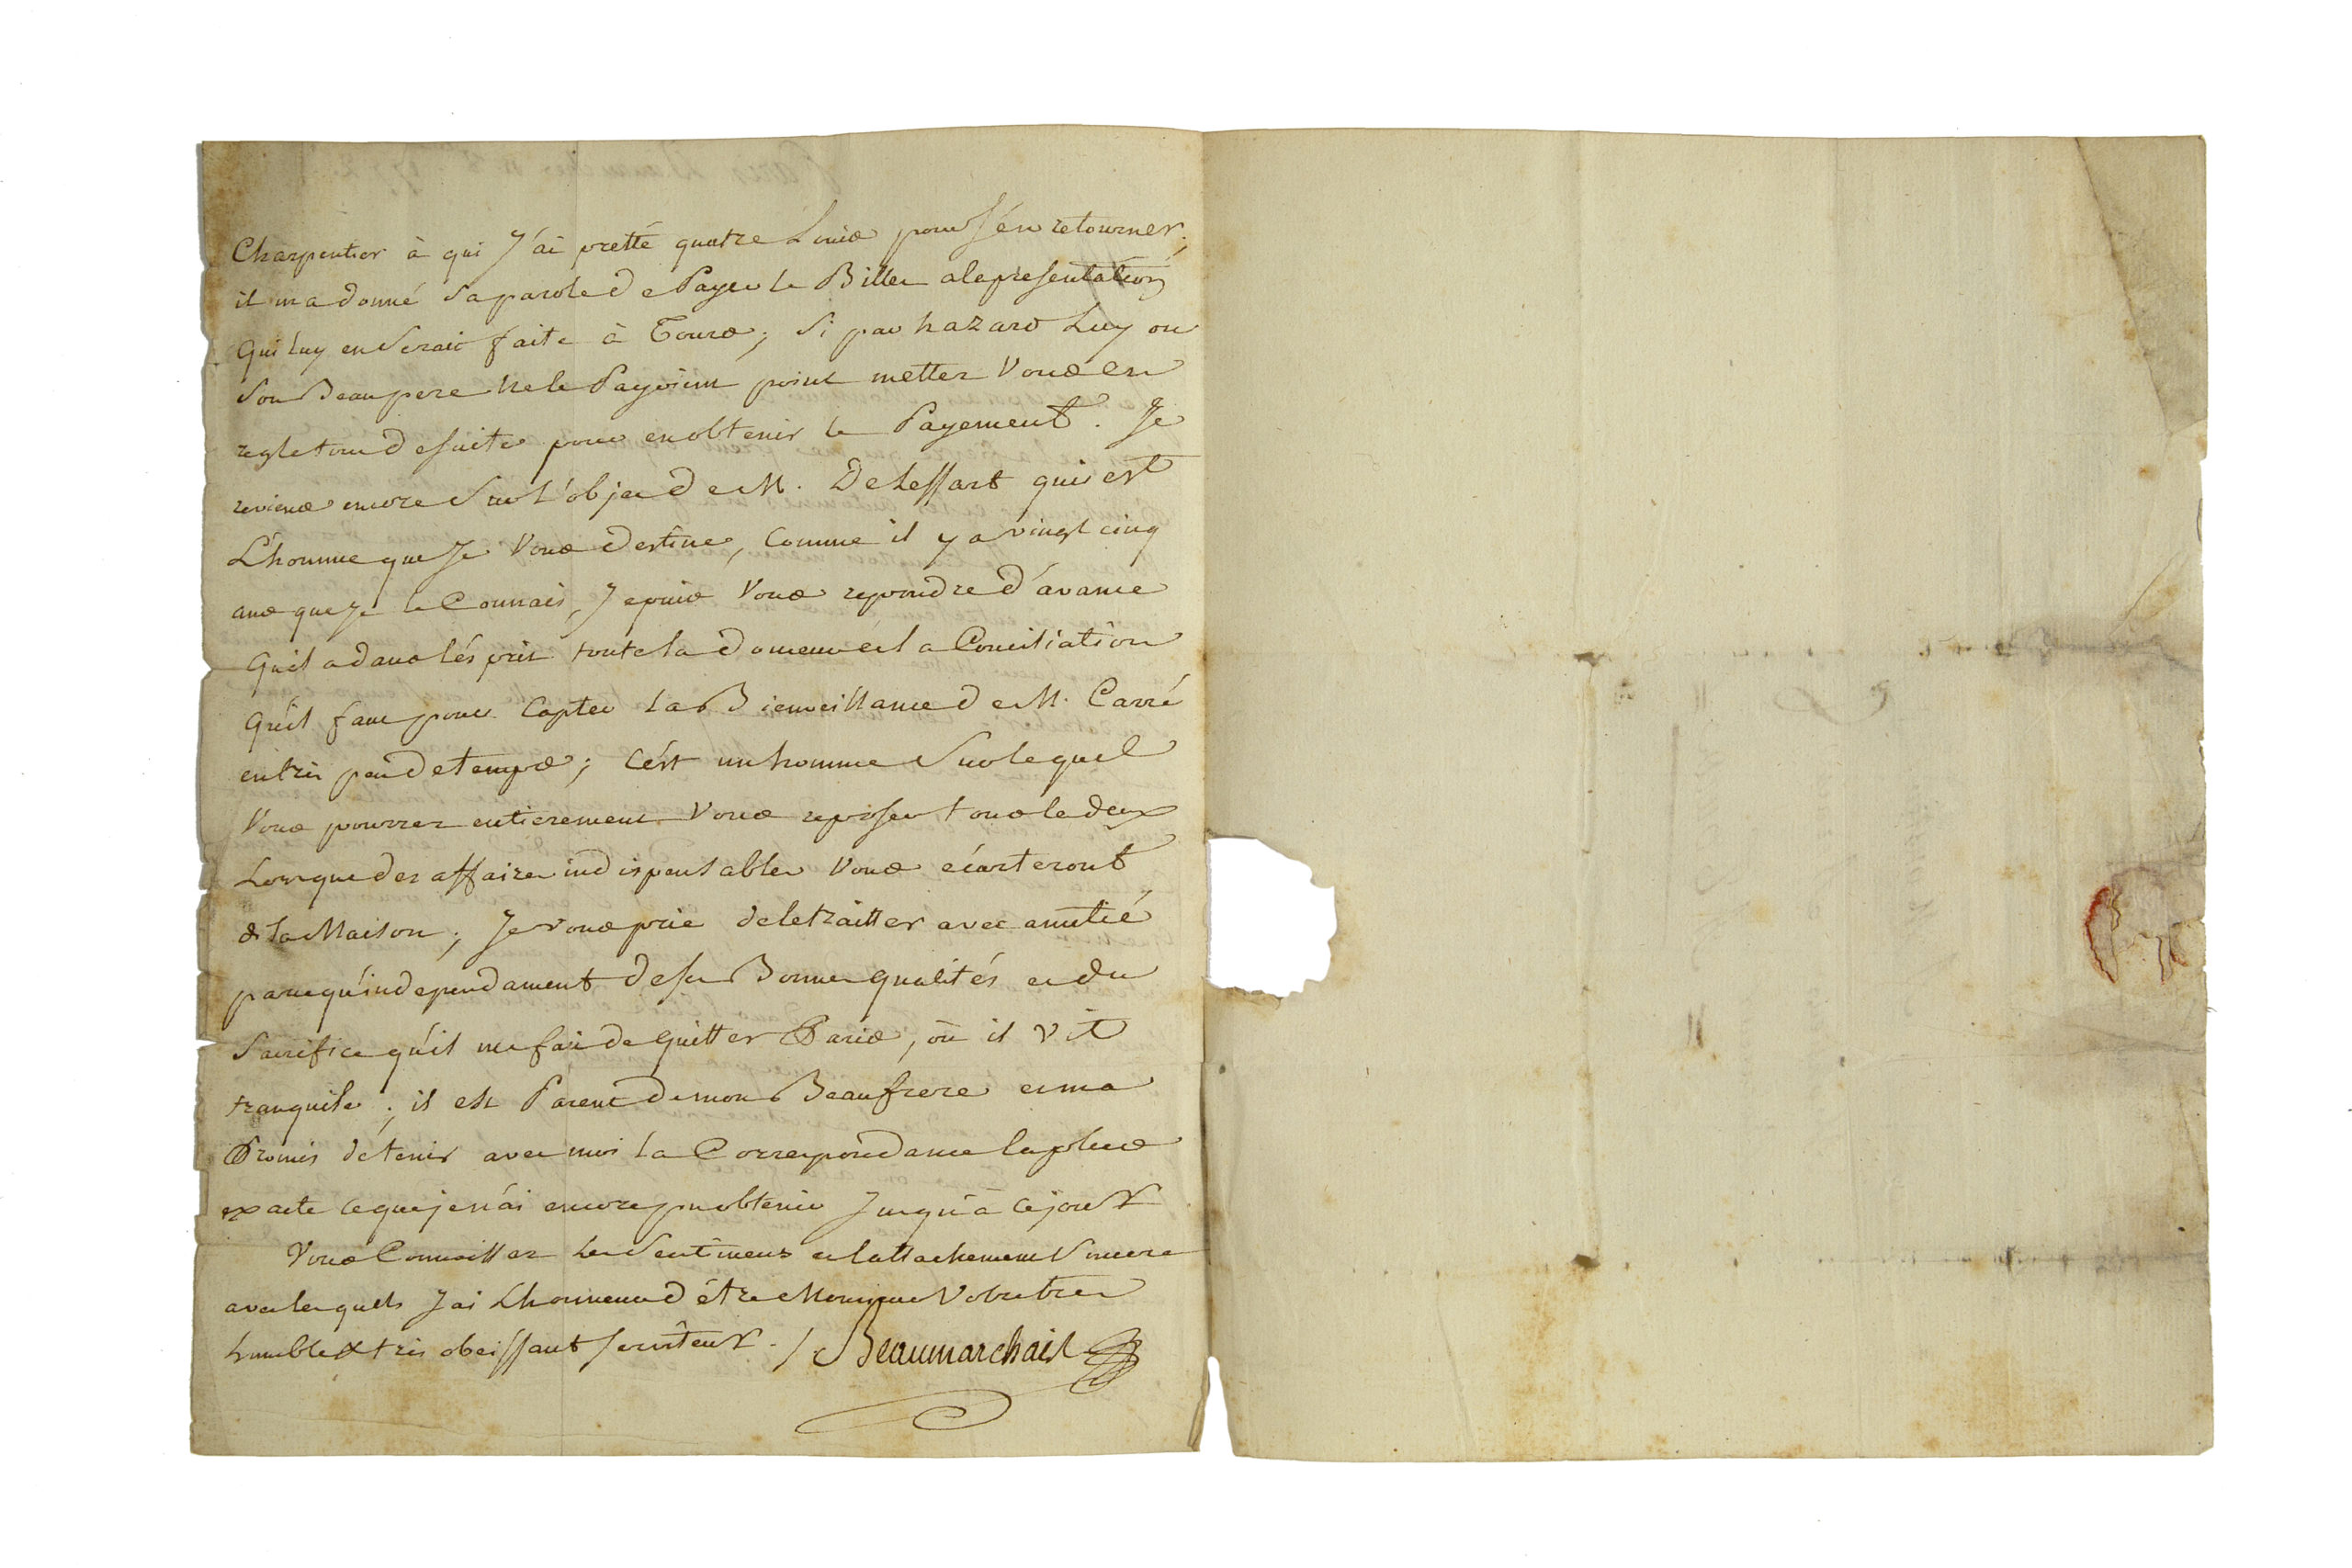 Charpentier à qui J'ai pretté quatre Louis pour s'én retourner;
il ma donné Sa parole de Payer le Billet a la presentation
Qui luy en Serait faite à Tours; Si par hazard Luy ou
Son Beaupere ne le Payoient point mettez Vous en
regle tout de suite pour en obtenir le Payement. Je
reviens encore Sur L'objet de M. De Lessart qui est
L'homme que Je Vous destine, Comme il y a vingt cinq
ans que Je le Connais, Je puis Vous repondre d'avance
Qu'il a dans lés prit toute la douceur et la Conciliation
Qu'il faut pour Capter la Bienveillance de M. Carré
en trés peu de temps; C'ést un homme Sur lequel
Vous pourrez entierement Vous reposer tous le deux
Lorsque des affaires indispensables Vous écarteront
de la Maison; Je vous prie de le traitter avec amitié
parcequ'independament de ses Bonnes Qualités et du
Sacrifice qu'il me fait de Quitter Paris, où il vit
tranquile; il est Parent de mon Beaufrere et ma
Promis de tenir avec moi la Correspondance la plus
exacte ce que je n'ai encore pu obtenir Jusqu'à ce jour
Vous Connoissez les Sentimens et lattachement Sincere
avec lesquels J'ai L'honneur d'étre Monsieur Votre tres
humble & tres obeissant serviteur. / Beaumarchais